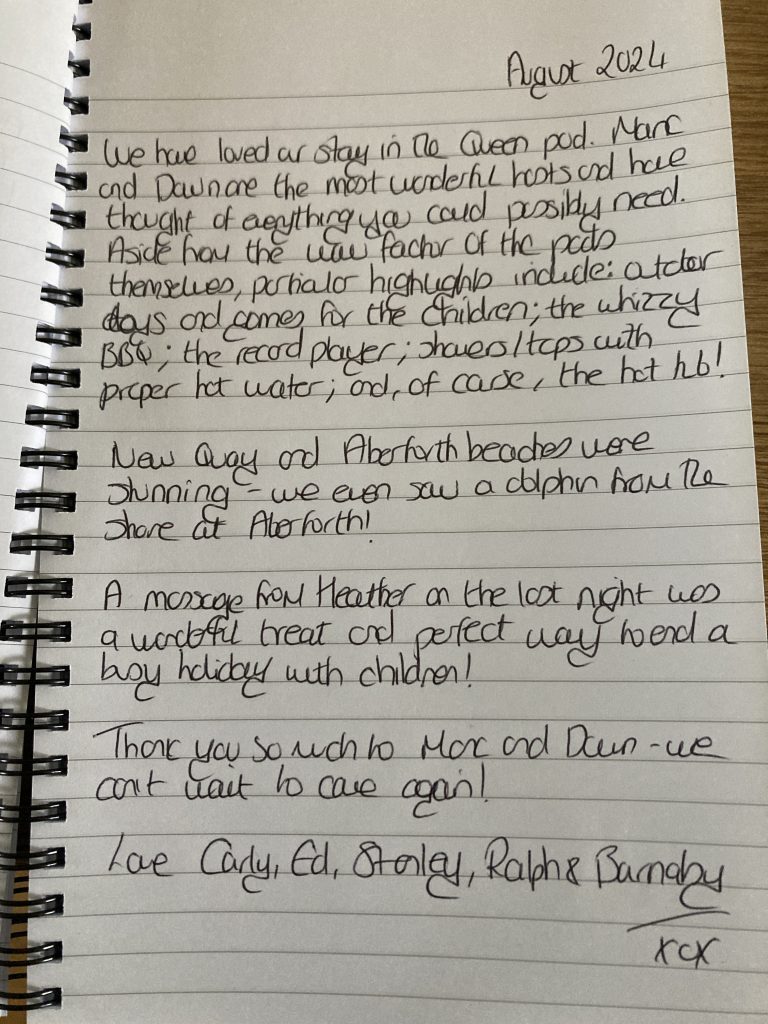 August 2024
We have loved our stay in the Queen pod. Marc
and Dawn are the most wonderful hosts and have
thought of everything you could possibly need.
Aside from the wow factor of the pods
themselves, particular highlights include: outdoor
toys and games for the children; the whizzy
BBQ; the record player; showers/taps with
proper hot water; and, of course, the hot tub!
New Quay and Aberforth beaches were
stunning - we even saw a dolphin from the
shore at Aberforth!
A massage from Heather on the last night was
a wonderful treat and perfect way to end a
busy holiday with children!
Thank you so much to Marc and Dawn - we
can't wait to come again!
Love Carly, Ed, Stanley, Ralph & Barnaby
xcx